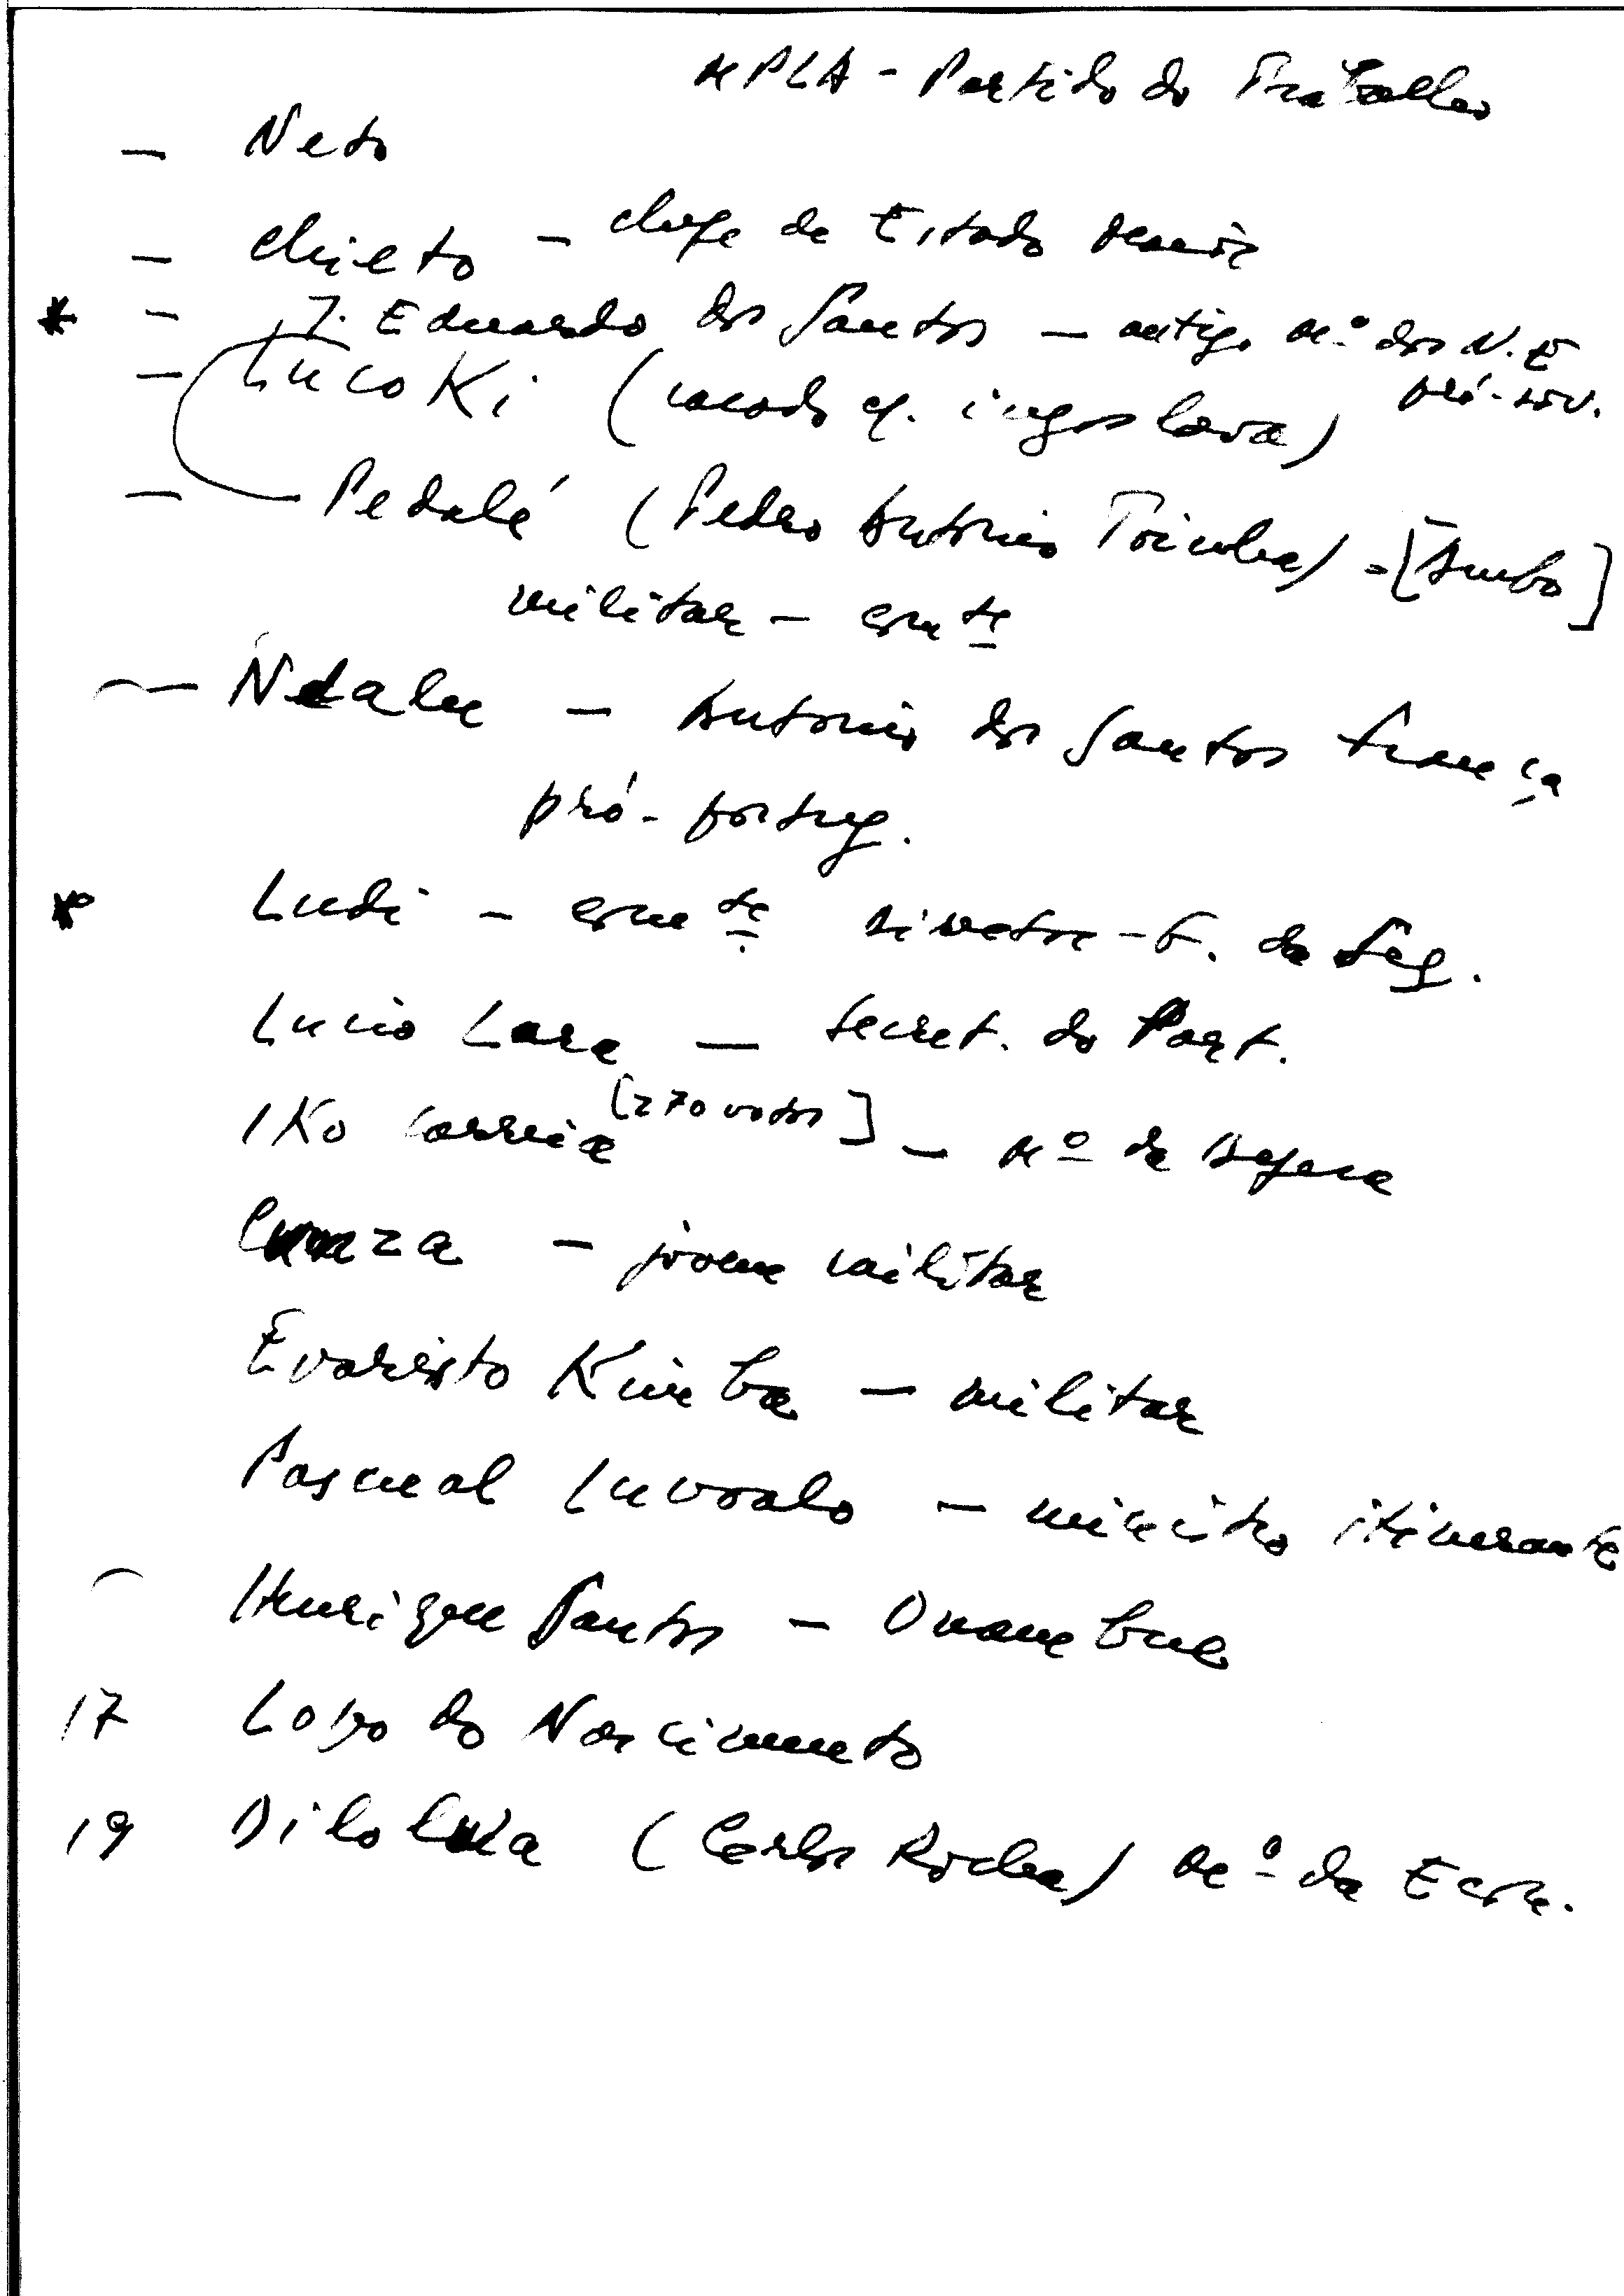 MPLA - Partido do Trabalho
— Neto
— Chieto — chefe de Estado Maior
* — J. Eduardo dos Santos — antigo M.º dos N.E
pró-sov.
— Lucoki (casado c/. iugoslava)
— Pedalé (Pedro Antonio Tonha) - [Ambo]
militar — com te
— Ndalu — Antonio dos Santos França
pró-portug.
* Ludi — com te Director-G. da Seg.
Lucio Lara — Secret. do Part.
IKo Carreia [270 votos] — M.º da Defesa
— jovem militar
Evaristo Kimba — militar
Pascual Luvualo — ministro itinerante
Henrique Santos — Onambue
17 Lopo do Nascimento
19 Dilolwa (Carlos Rocha) M.º da Econ.